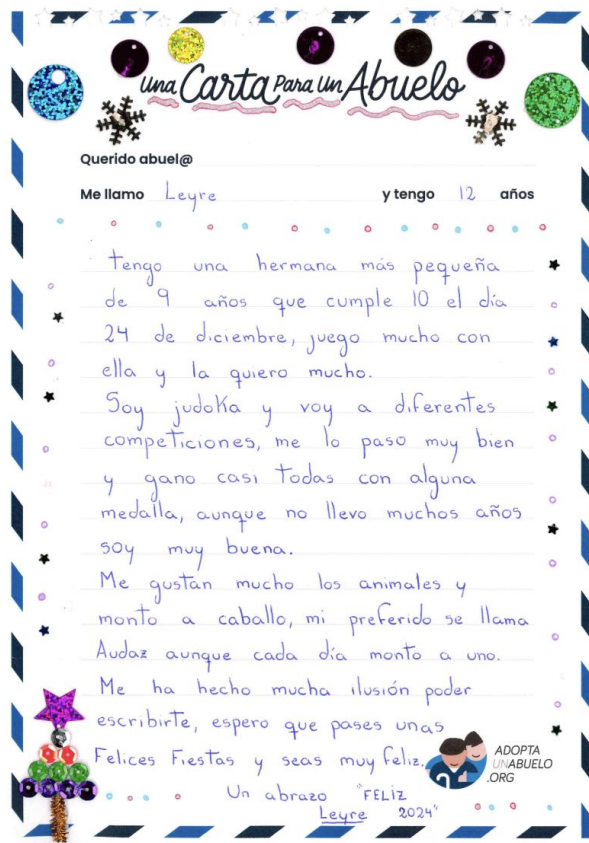 una Carta Para un Abuelo
Querido abuel@
Me llamo Leyre y tengo 12 años
tengo una hermana más pequeña
de 9 años que cumple 10 el día
24 de diciembre, juego mucho con
ella y la quiero mucho.
Soy judoka y voy a diferentes
competiciones, me lo paso muy bien
y gano casi todas con alguna
medalla, aunque no llevo muchos años
soy muy buena.
Me gustan mucho los animales y
monto a caballo, mi preferido se llama
Audaz aunque cada día monto a uno.
Me ha hecho mucha ilusión poder
escribirte, espero que pases unas
Felices Fiestas y seas muy feliz.
ADOPTA
UNABUELO
.ORG
Un abrazo "FELIZ
Leyre 2024"